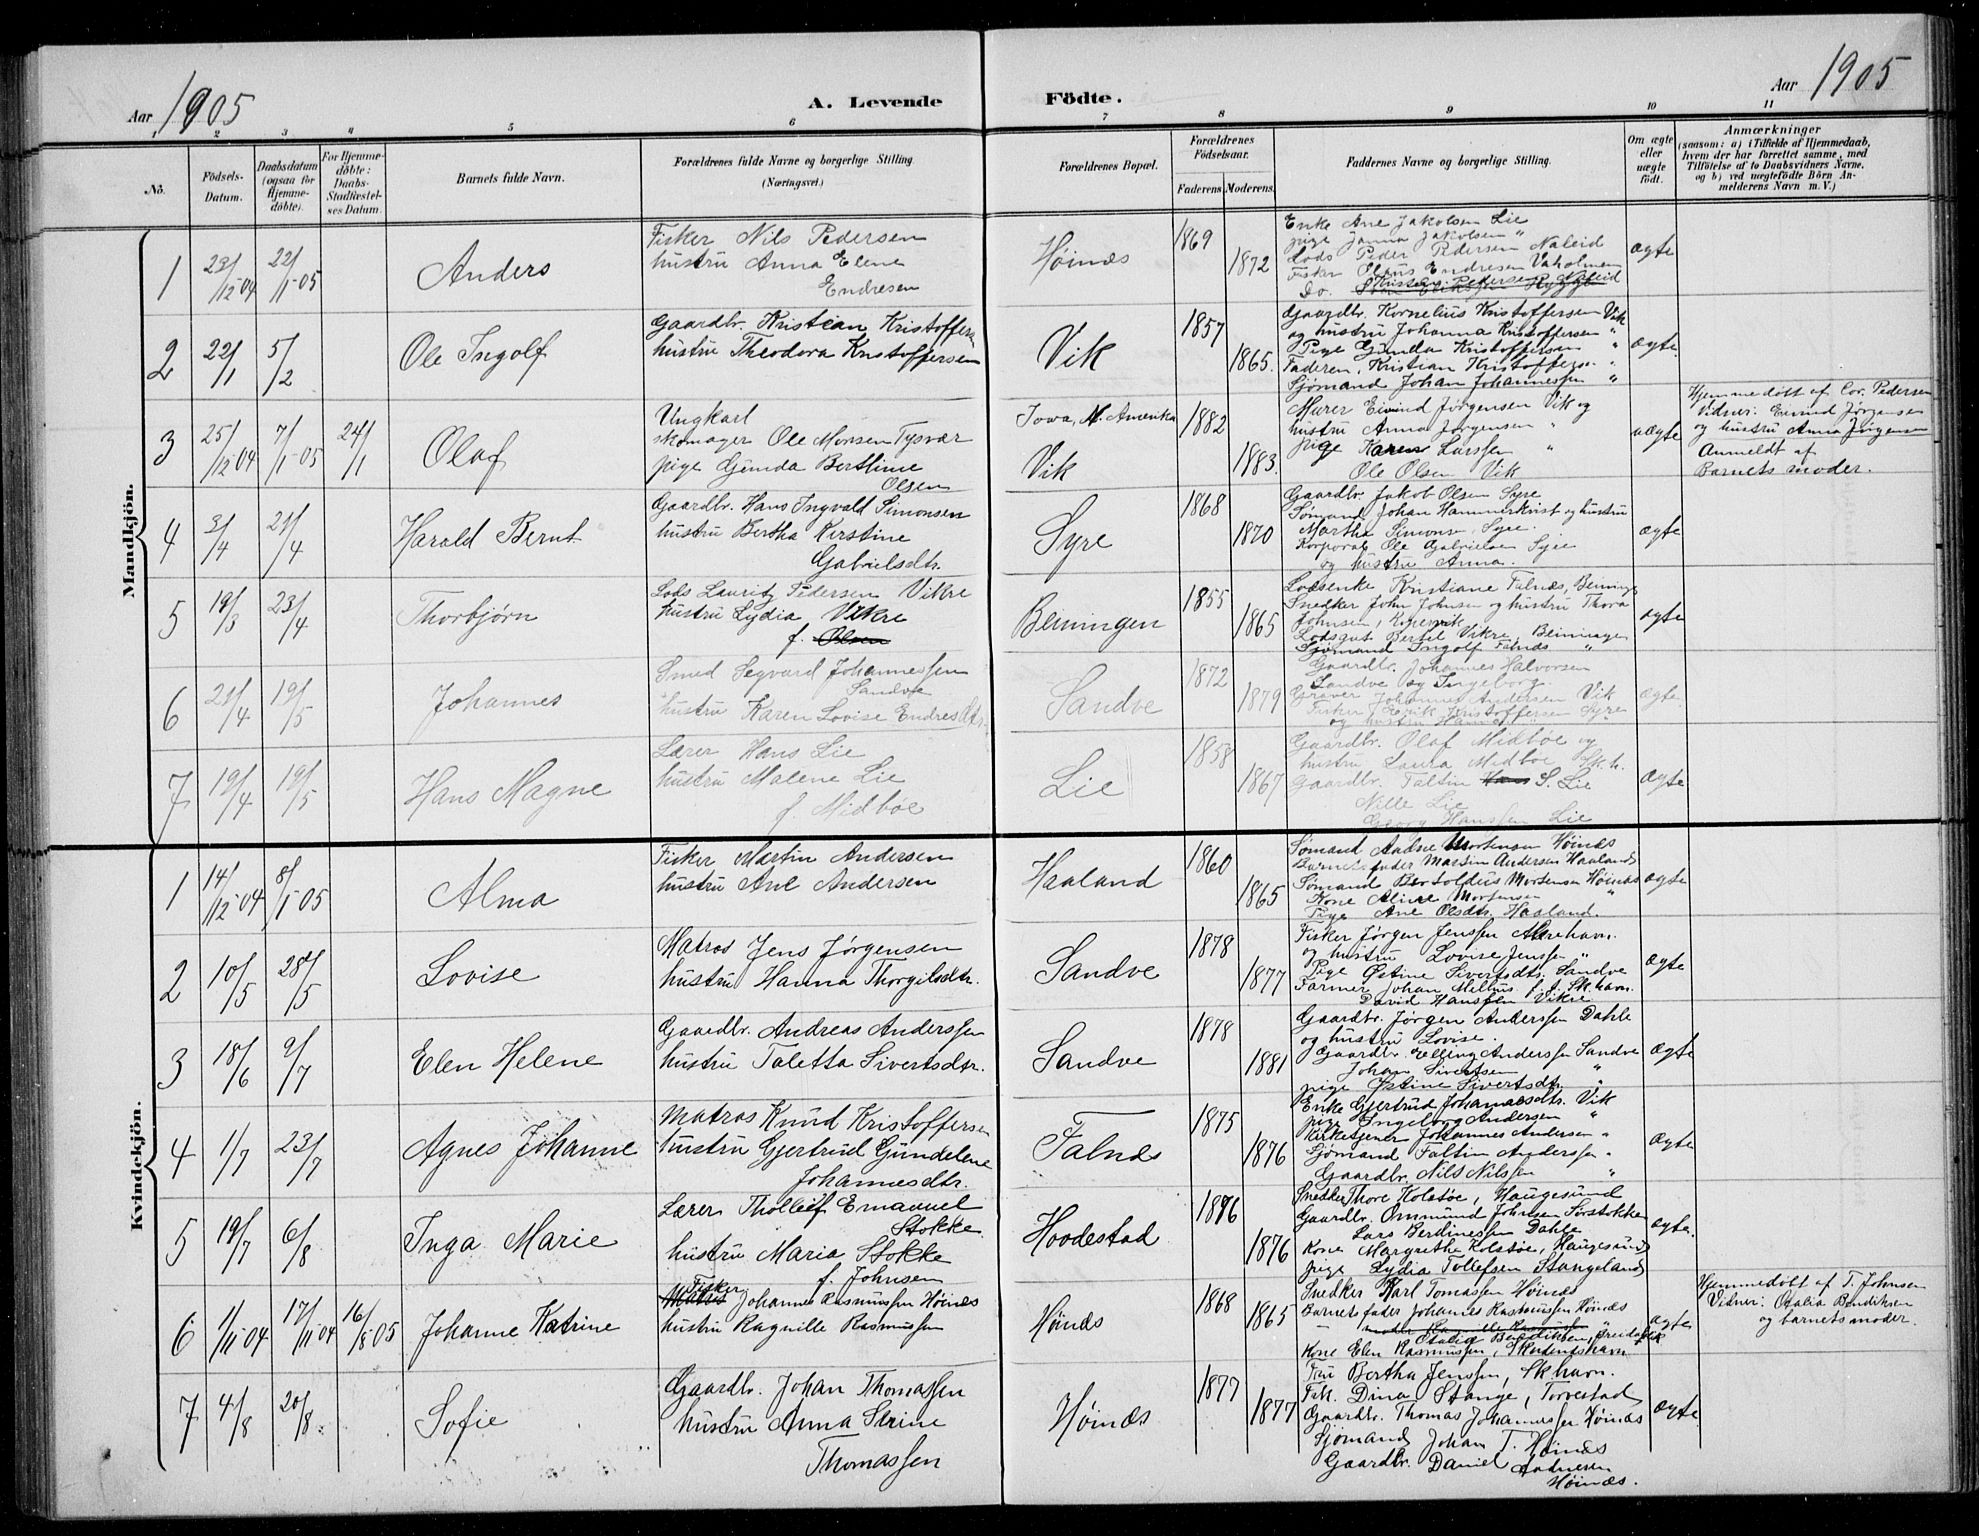 Aar 1905
A. Levende
Födte.
Aar 1905
1 2 3 4 5 6 7 8 9 10 11
No.
Födsels-Datum.
Daabsdatum (ogsaa for Hjemmedöbte).
For Hjemmedöbte: Daabs-Stadfæstelses Datum.
Barnets fulde Navn.
Forældrenes fulde Navne og borgerlige Stilling. (Næringsvei.)
Forældrenes Bopæl.
Forældrenes Födselsaar.
Faderens. Moderens.
Faddernes Navne og borgerlige Stilling.
Om ægte eller uægte födt.
Anmærkninger
(saasom: a) i Tilfælde af Hjemmedaab, hvem der har forrettet samme, med Tilföielse af to Daabsvidners Navne, og b) ved uægtefödte Börn Anmelderens Navn m. V.)
Mandkjön.
1 23/12-04 22/1-05 Anders
Fisker Nils Pedersen
hustru Anna Elene
Endresen
Høinæs 1869 1872
Enke Ane Jakobsen Lie
pige Janna Jakobsen "
Lods Peder Pedersen Naleid
Fisker Olaus Endresen Vaholmen
Do.
ægte
2 22/1 5/2 Ole Ingolf
Gaardbr. Kristian Kristoffersen
hustru Theodora Kristoffersen
Vik 1857 1865.
Gaardbr. Kornelius Kristoffersen Vik
og hustru Johanna Kristoffersen "
Pige Gunda Kristoffersen "
Faderen, Kristian Kristoffersen "
Sjømand Johan Johannessen "
ægte
3 25/12-04 7/1-05 24/1 Olaf
Ungkarl
skomager Ole Monsen Tysvær
pige Gunda Bertline
Olsen
Iowa, N. Amerika
Vik 1882 1883.
Murer Eivind Jørgensen Vik og
hustru Anna Jørgensen "
pige Karen Larssen "
Ole Olsen Vik
uægte
Hjemmedøbt af Cor. Pedersen
Vidner: Eivind Jørgensen
og hustru Anna Jørgensen
Anmeldt af
Barnets moder.
4 3/4 21/4 Harald Bernt
Gaardbr. Hans Ingvald Simonsen
hustru Bertha Kirstine
Gabrielsdtr.
Syre 1868 1870
Gaardbr. Jakob Olsen Syre
Sømand Johan Hammerkvist og hustru
Martha Simons. Syre.
Korporal Ole Gabrielsen Syre
og hustru Anna.
ægte
5 19/3 23/4 Thorbjørn
Lods Lauritz Pedersen Vikre
hustru Lydia Vikre
f. Olsen
Beiningen 1855 1865
Lodsenke Kristiane Falnæs, Beininge
Snedker John Johnsen og hustru Thora
Johnsen, Kopervik
Lodsgut Bertel Vikre, Beininge
Sjømand Ingolf Falnæs "
ægte
6 21/4 19/5 Johannes
Smed Segvard Johannessen
Sandve
hustru Karen Lovise Endresdtr.
Sandve 1872 1879
Gaardbr. Johannes Halvorsen
Sandve og Ingeborg.
Graver Johannes Andersen Vik
Fisker Erik Kristoffersen Syre
og hustru Hanna
ægte
7 19/4 19/5 Hans Magne
Lærer Hans Lie
hustru Malene Lie
f. Midbøe
Lie 1858 1867
Gaardbr. Olaf Midbøe og
hustru Laura Midbøe Sk.h.
Gaardbr. Faltin Hans S. Lie
Nille Lie
Georg Hanssen Lie
ægte
Kvindekjön.
1 14/12-04 8/1-05 Alma
Fisker Martin Andersen
hustru Ane Andersen
Haaland 1860 1865
Sømand Aadne Mortensen Høinæs
Barnets fader Martin Andersen Haaland
Sømand Bertoldus Mortensen Høinæs
Kone Aline Mortensen "
Pige Ane Olsdtr. Haaland.
ægte
2 10/5 28/5 Lovise
Matros Jens Jørgensen
hustru Hanna Thorgilsdtr.
Sandve 1878 1877
Fisker Jørgen Jenssen Akrehavn.
og hustru Lovise Jenssen "
Pige Østine Sivertsdtr. Sandve
Farmer Johan Melhus f. A. Sk.havn.
David Hanssen Vikre
ægte
3 18/6 9/7 Elen Helene
Gaardbr. Andreas Anderssen
hustru Taletta Sivertsdtr.
Sandve 1878 1881
Gaardbr. Jørgen Anderssen Dahle
og hustru Lovise.
Gaardbr. Elling Anderssen Sandve
Johan Sivertsen "
pige Østine Sivertsdtr. "
ægte
4 1/7 23/7 Agnes Johanne
Matros Knud Kristoffersen
hustru Gjertrud Gundelene
Johannesdtr.
Falnæs 1875 1876
Enke Gjertrud Johannesdtr. Vik
pige Ingeborg Andersen "
Kirketjener Johannes Andersen "
Sjømand Faltin Anderssen "
Gaardbr. Nils Nilssen "
ægte
5 19/7 6/8 Inga Marie
Lærer Tholleif Emanuel
Stokke
hustru Maria Stokke
f. Johnsen
Hovdestad 1876 1876
Snedker Thore Kolstøe, Haugesund
Gaardbr. Ommund Johnsen Sørstokke
Lars Berdinessen Dahle
Kone Margrethe Kolstøe, Haugesund
pige Lydia Tollefsen Stangeland
ægte.
6 1/11-04 17/11-04 16/8-05 Johanne Katrine
Matros Fisker Johannes Rasmussen Høinæs
hustru Ragnille Rasmussen
Høinæs 1868 1865
Snedker Karl Tomassen Høinæs
Barnets fader Johannes Rasmussen Høinæs
" moder Ragnille Rasmussen "
Otalia Bendiksen,
Kone Elen Rasmussen, Skudeneshavn
ægte
Hjemmedøbt af T. Johnsen
Vidner: Otalia Bendiksen
og barnets moder.
7 4/8 20/8 Sofie
Gaardbr. Johan Thomassen
hustru Anna Serine
Thomassen
Høinæs 1877 1877
Fru Bertha Jenssen, Sk.havn.
Frk. Dina Stange, Torvestad
Gaardbr. Thomas Johannessen Høinæs
Sjømand Johan T. Høinæs
Gaardbr. Daniel Aadnesen
Høinæs.
ægte